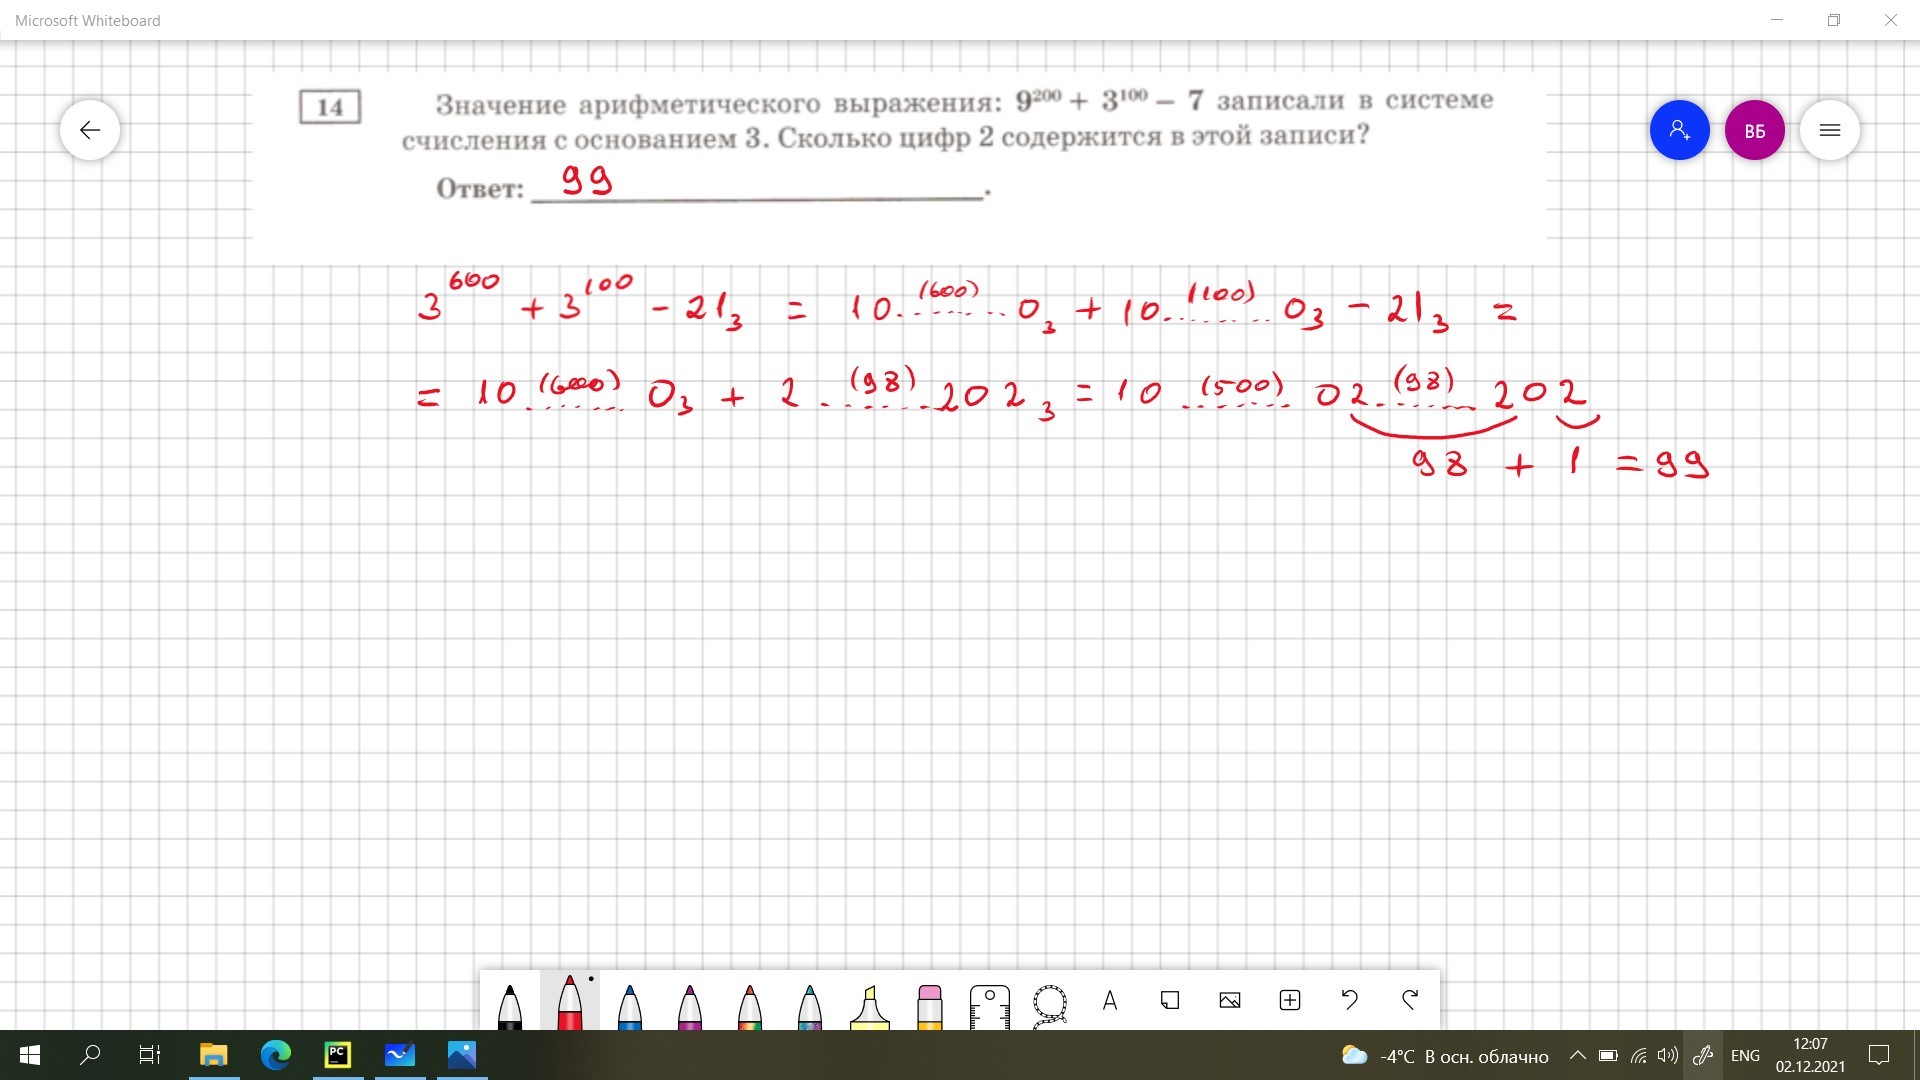 Microsoft Whiteboard
14 Значение арифметического выражения: 9²⁰⁰ + 3¹⁰⁰ − 7 записали в системе
счисления с основанием 3. Сколько цифр 2 содержится в этой записи?
Ответ: 99.
ВБ
3⁶⁰⁰ + 3¹⁰⁰ − 21₃ = 10 ...(600)... 0₃ + 10 ...(100)... 0₃ − 21₃ =
= 10 ...(600)... 0₃ + 2 ...(98)... 202₃ = 10 ...(500)... 02 ...(98)... 202
98 + 1 = 99
A
PC
-4°C В осн. облачно
ENG
12:07
02.12.2021